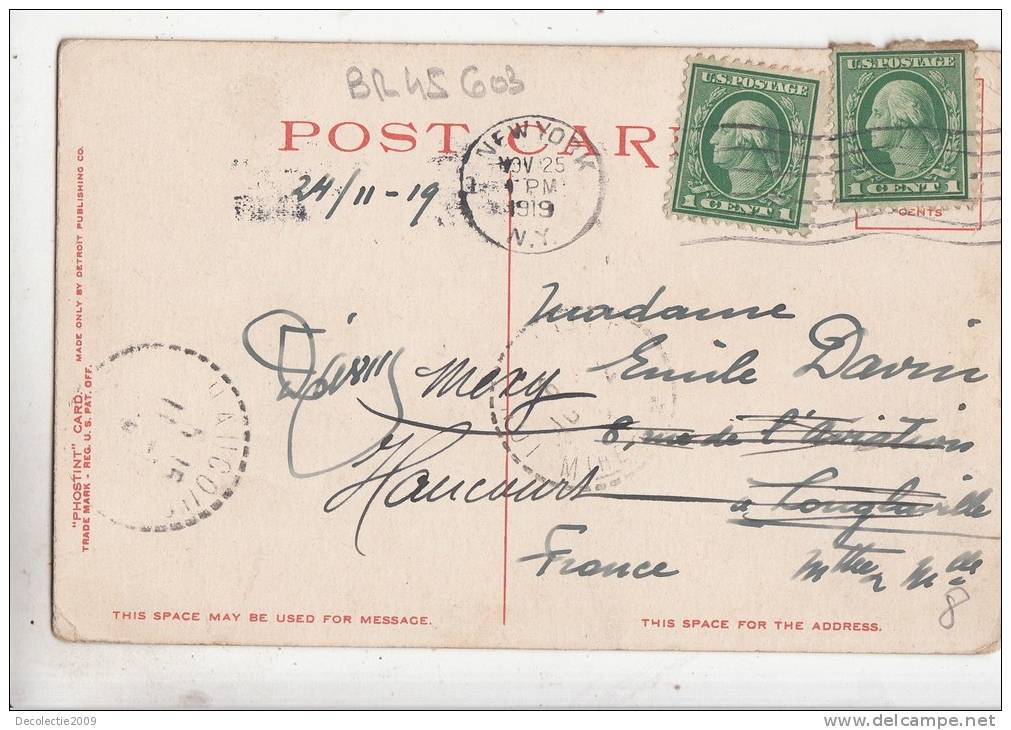 BR 45 603
POST CARD
U.S. POSTAGE
1 CENT 1
U.S. POSTAGE
1 CENT 1
CENTS
NEW YORK
NOV 25
PM
1919
N.Y.
24/11-19
Madame
Emile Davin
8, rue de l'Aviation
à Longlaville
Mthe Mlle
France
Mexy
Haucourt
"PHOSTINT" CARD.
MADE ONLY BY DETROIT PUBLISHING CO.
TRADE MARK - REG. U.S. PAT. OFF.
15
THIS SPACE MAY BE USED FOR MESSAGE.
THIS SPACE FOR THE ADDRESS.
8
Decolectie2009
www.delcampe.net